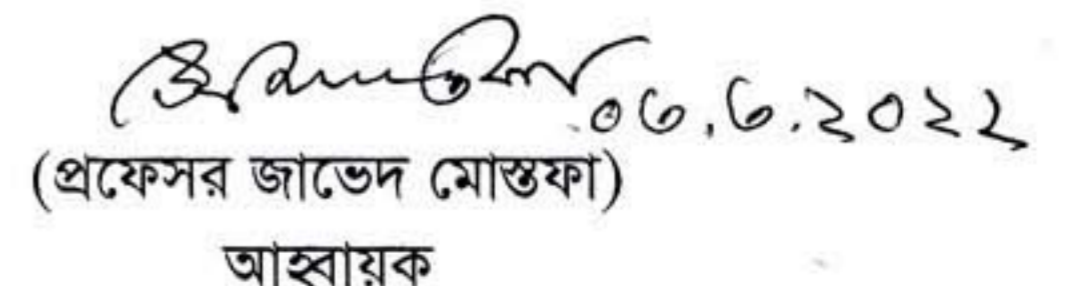 ০৬.৬.২০২২
(প্রফেসর জাভেদ মোস্তফা)
আহ্বায়ক